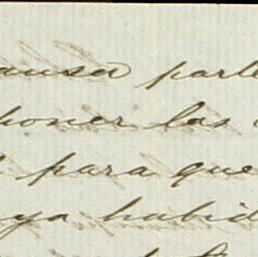 ausa parte
poner las
para que
ya habid